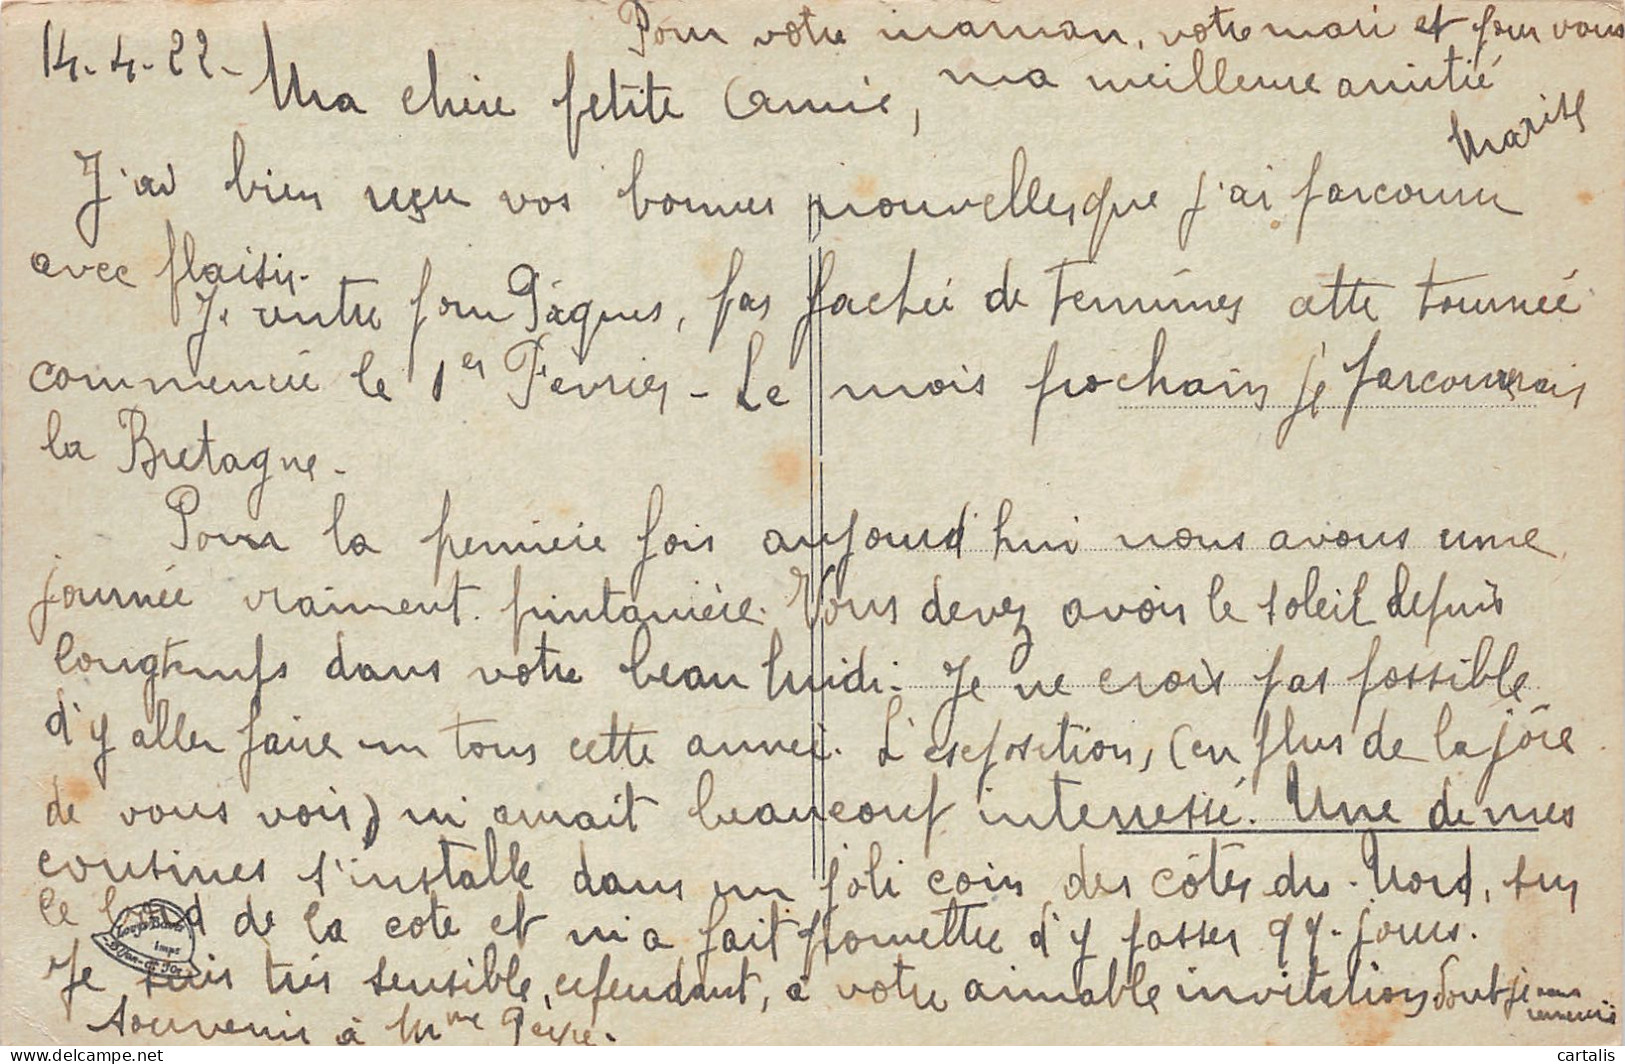 14-4-22-
Ma chère petite Amie,
J'ai bien reçu vos bonnes nouvelles, que j'ai parcouru
avec plaisir.
Je rentre pour Pâques, pas faché de terminer cette tournée
commencée le 1er Février - Le mois prochain je parcourerais
la Bretagne -
Pour la première fois aujourd'hui nous avons une
journée vraiment printanière. Vous devez avoir le soleil depuis
longtemps dans votre beau Midi. Je ne crois pas possible
d'y aller faire un tour cette année. L'exposition, (en plus de la joie
de vous voir) m'aurait beaucoup interressé. Une de mes
cousines s'installe dans un joli coin des côtes du Nord, sur
le bord de la cote et m'a fait promettre d'y passer qq. jours.
Je suis très sensible, cependant, à votre aimable invitation, dont je vous remercie
Souvenir à Mme Peyre.
Pour votre maman, votre mari et pour vous
ma meilleure amitié
cartalis